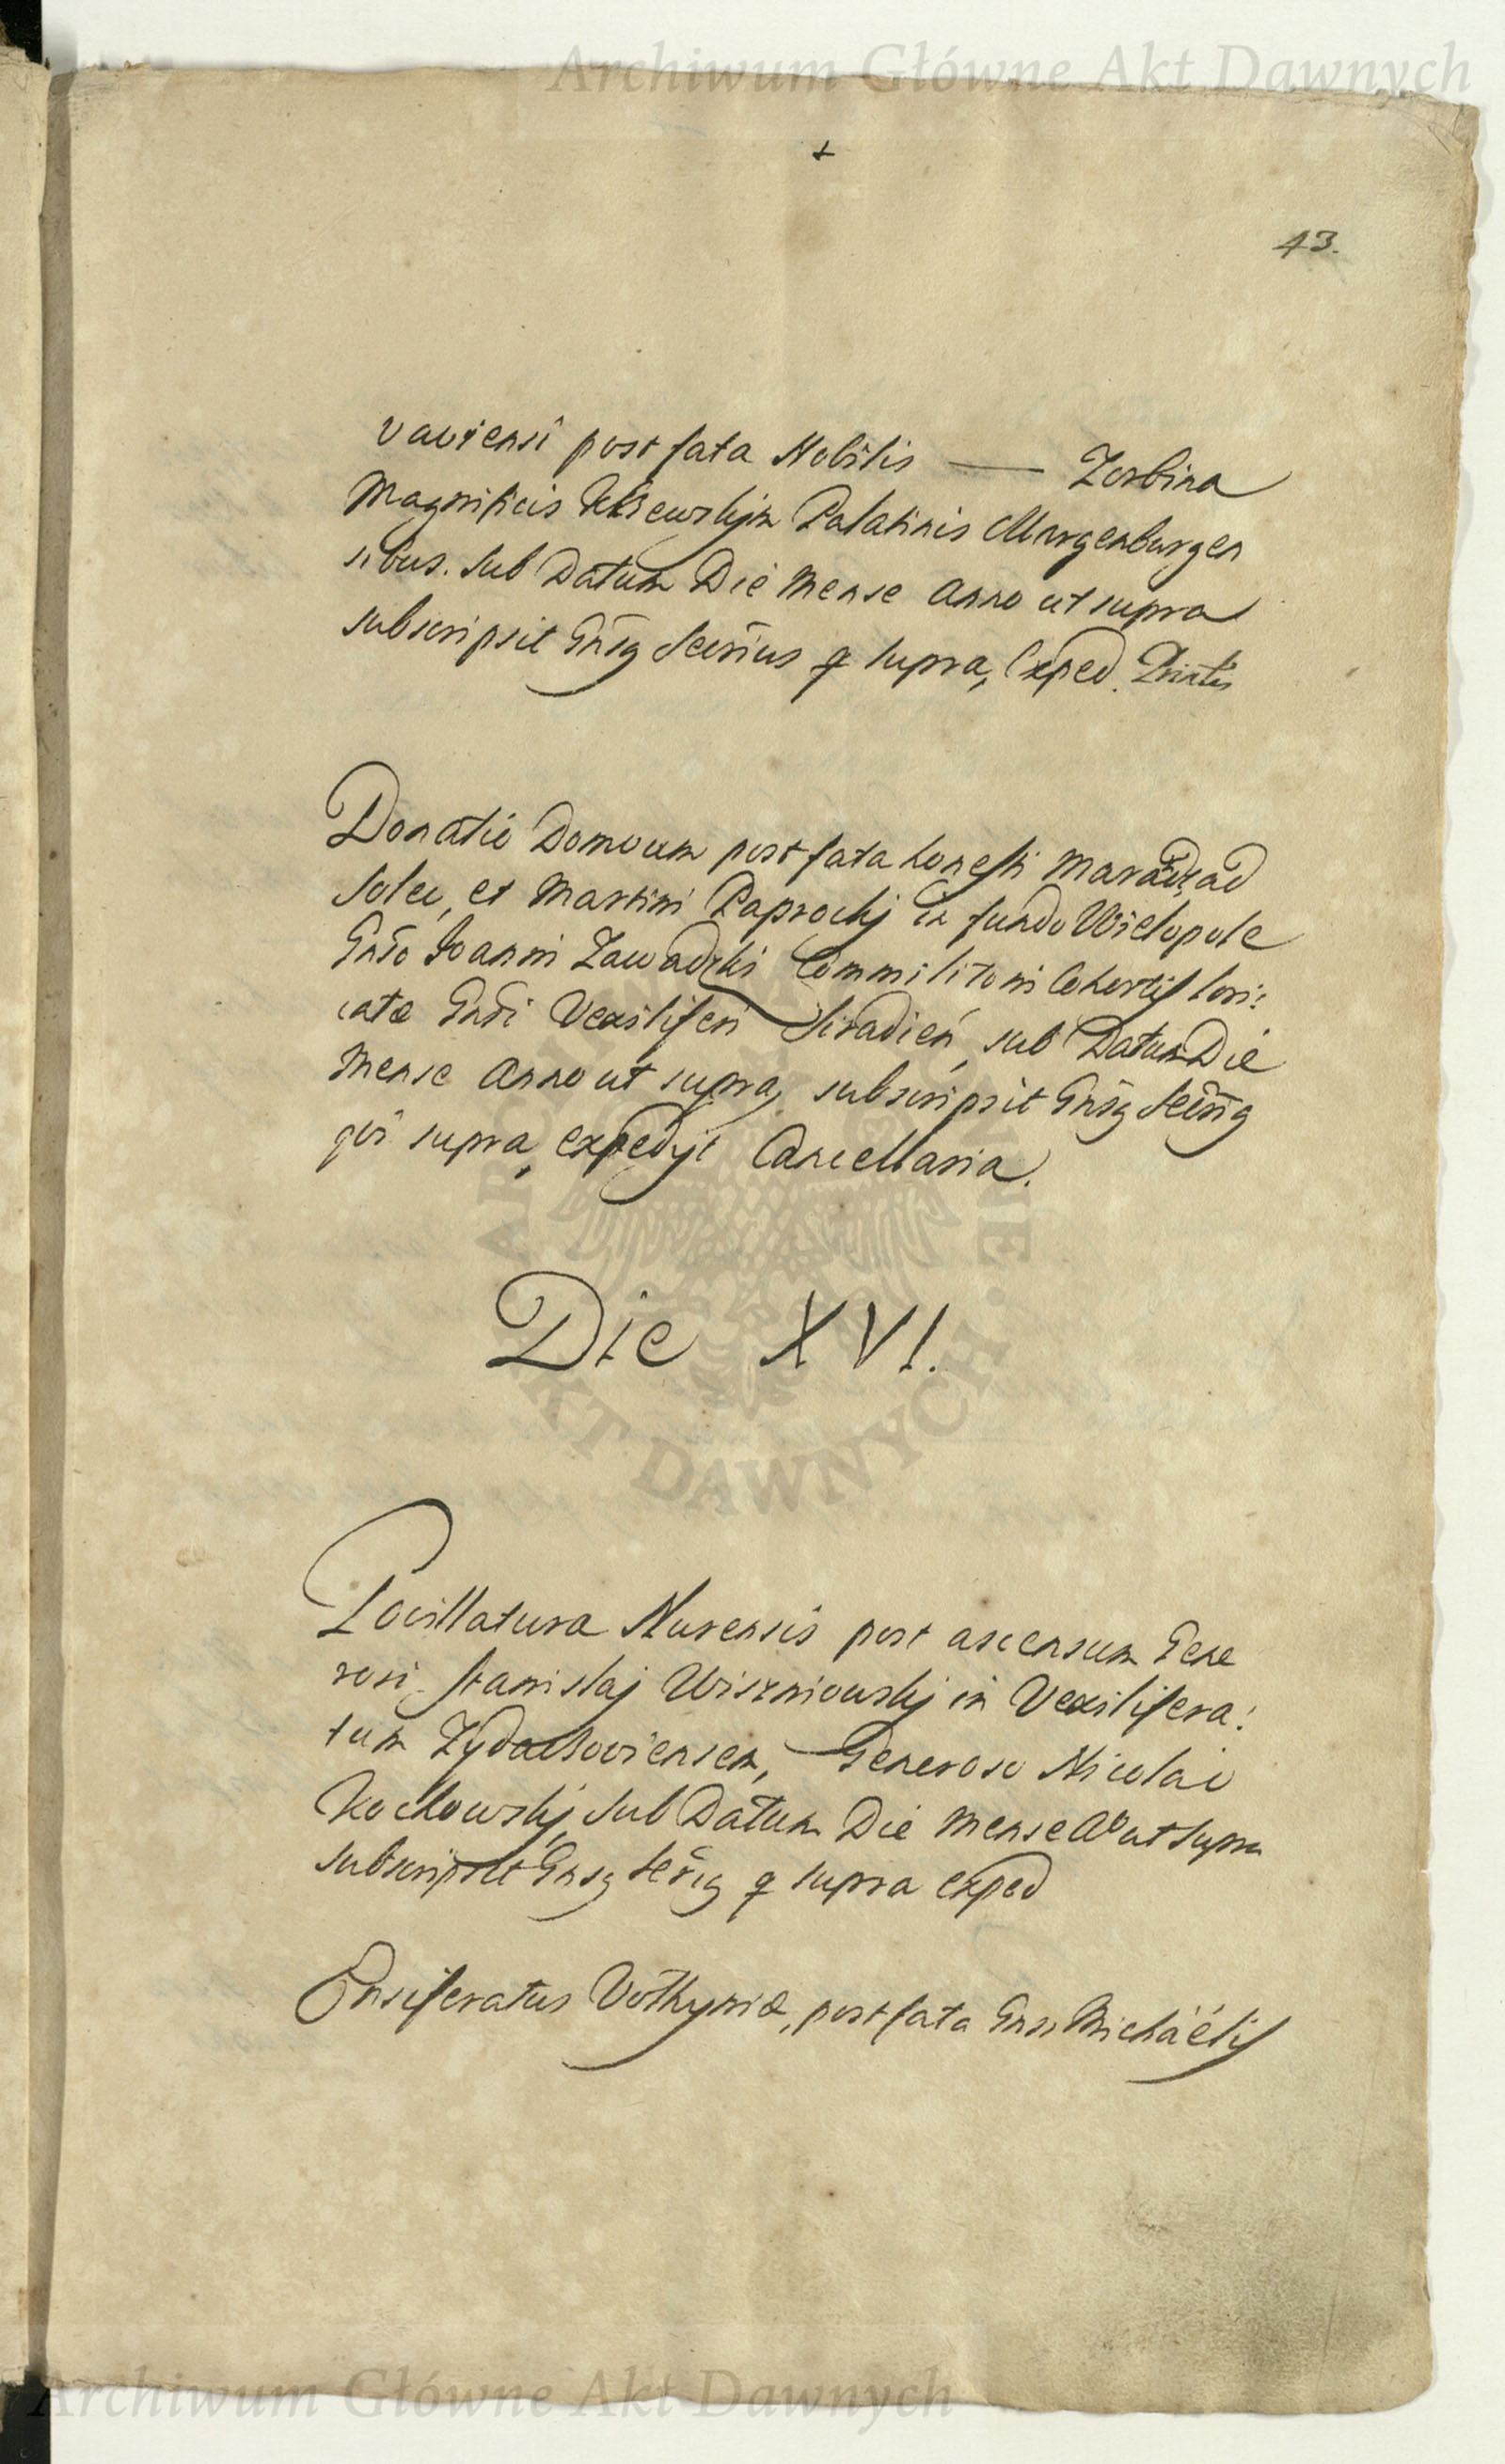 Archiwum Główne Akt Dawnych
43.
post fata Nobilis — Zorbina
Magnificis Palatinis Margenburgen
sibus. Sub Datum Die Mense Anno ut supra
subscripsit Gnsq q supra, Exped.
Donatio Domoum post fata honesti ad
Solec, et Martini Paprockj in fundo Wielopole
Joanni Zawadzki Commilitoni Cohortis lori:
catæ Vexiliferi Siradień, sub Datum Die
Mense Anno ut supra, subscripsit Gnsq
supra, expedijt Cancellaria.
Die XVI.
Pocillatura Nurensis post ascensum Gene
rosi Stanislaj Wiszniowskj in Vexilifera:
tum Zydaczoviensem, Generoso Nicolao
Kochowskj, Sub Datum Die Mense Aº ut supra
subscripsit Gnsq q supra exped
Ensiferatus Volhyniæ, post fata Gnsi Michäélis
ARCHIWUM GŁÓWNE AKT DAWNYCH
Archiwum Główne Akt Dawnych